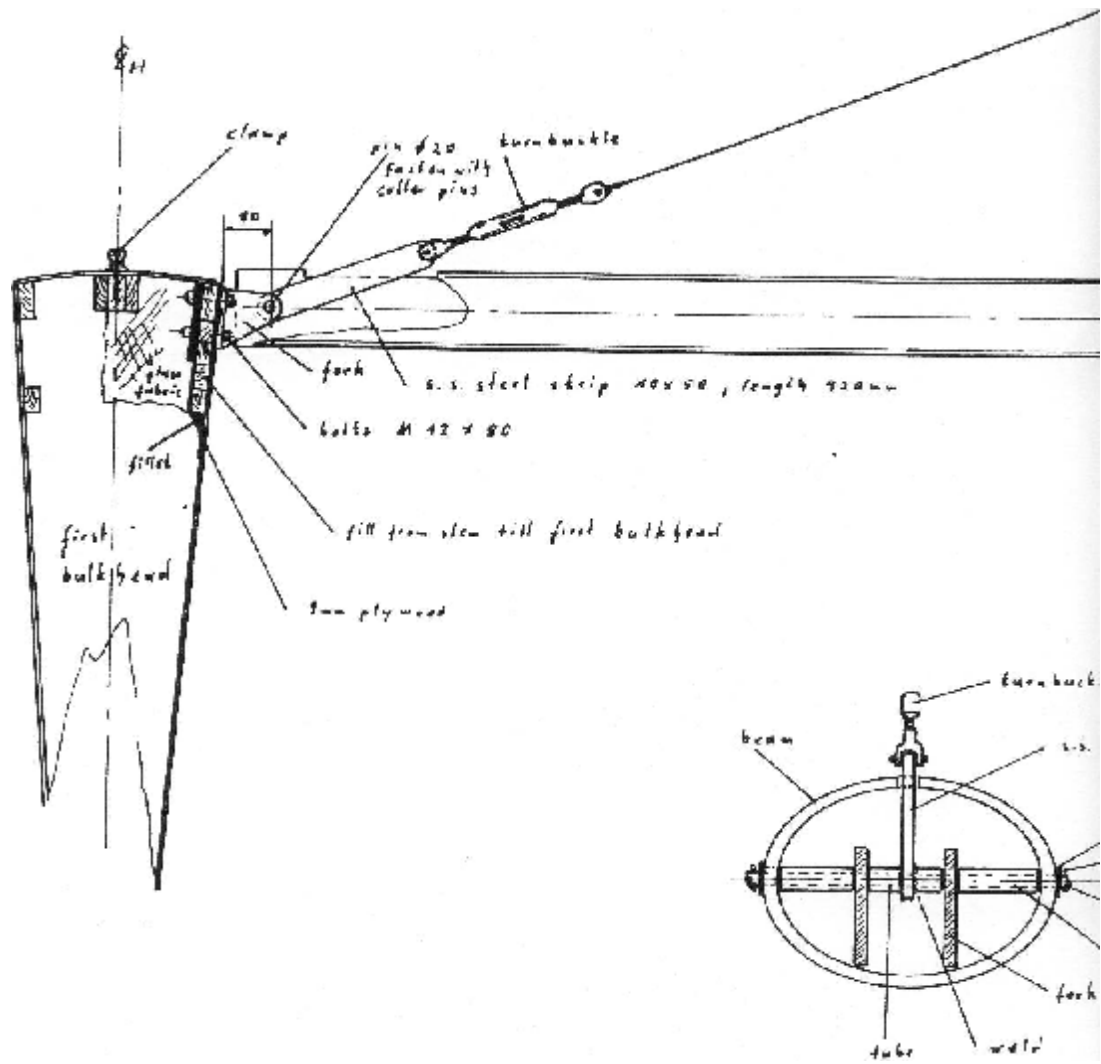 clamp
pin ø 20
fasten with
cotter pins
turnbuckle
fork
s.s. steel strip 10x50, length 320mm
bolts M 12 x 80
glass
fabric
fillet
fill from stem till first bulkhead
first
bulkhead
9mm plywood
turnbuck
beam
s.s.
fork
tube
weld